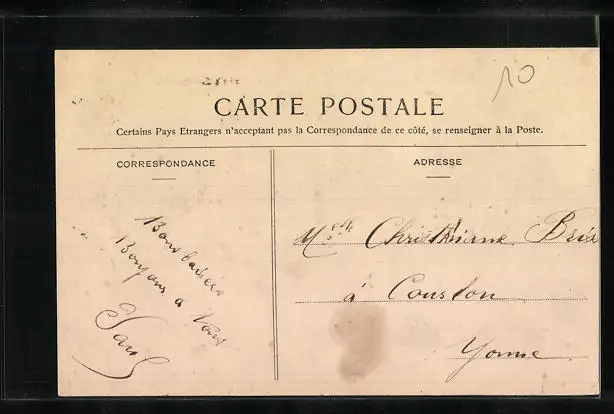 10
CARTE POSTALE
Certains Pays Etrangers n'acceptant pas la Correspondance de ce côté, se renseigner à la Poste.
CORRESPONDANCE
ADRESSE
Bons baisers
Bonjour a Vous
Paul
Melle Christianne
à Couston
Yonne